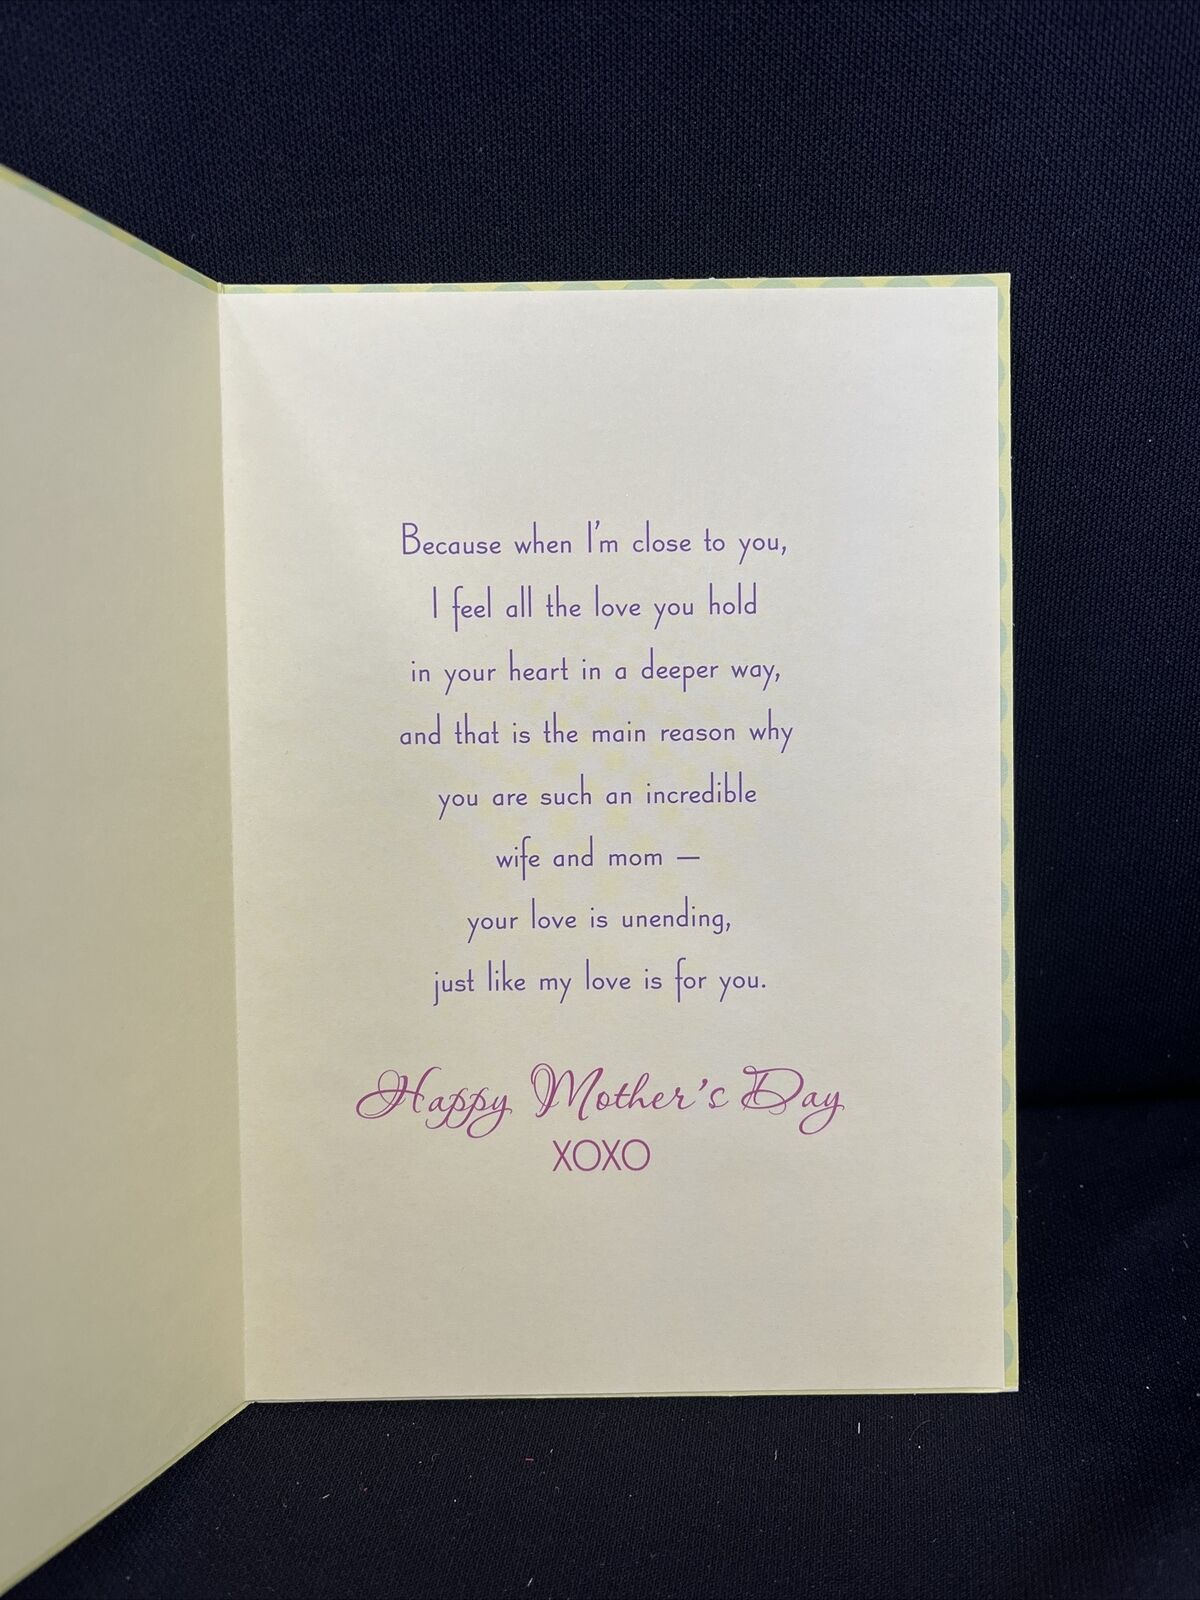 Because when I'm close to you,
I feel all the love you hold
in your heart in a deeper way,
and that is the main reason why
you are such an incredible
wife and mom —
your love is unending,
just like my love is for you.
Happy Mother's Day
XOXO